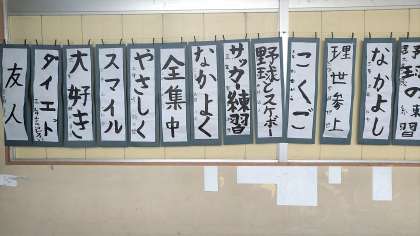 の練習
なかよし
理世参上
こくご
野球とスケボー
サッカー練習
なかよく
全集中
やさしく
スマイル
大好き
ダイエット
友人